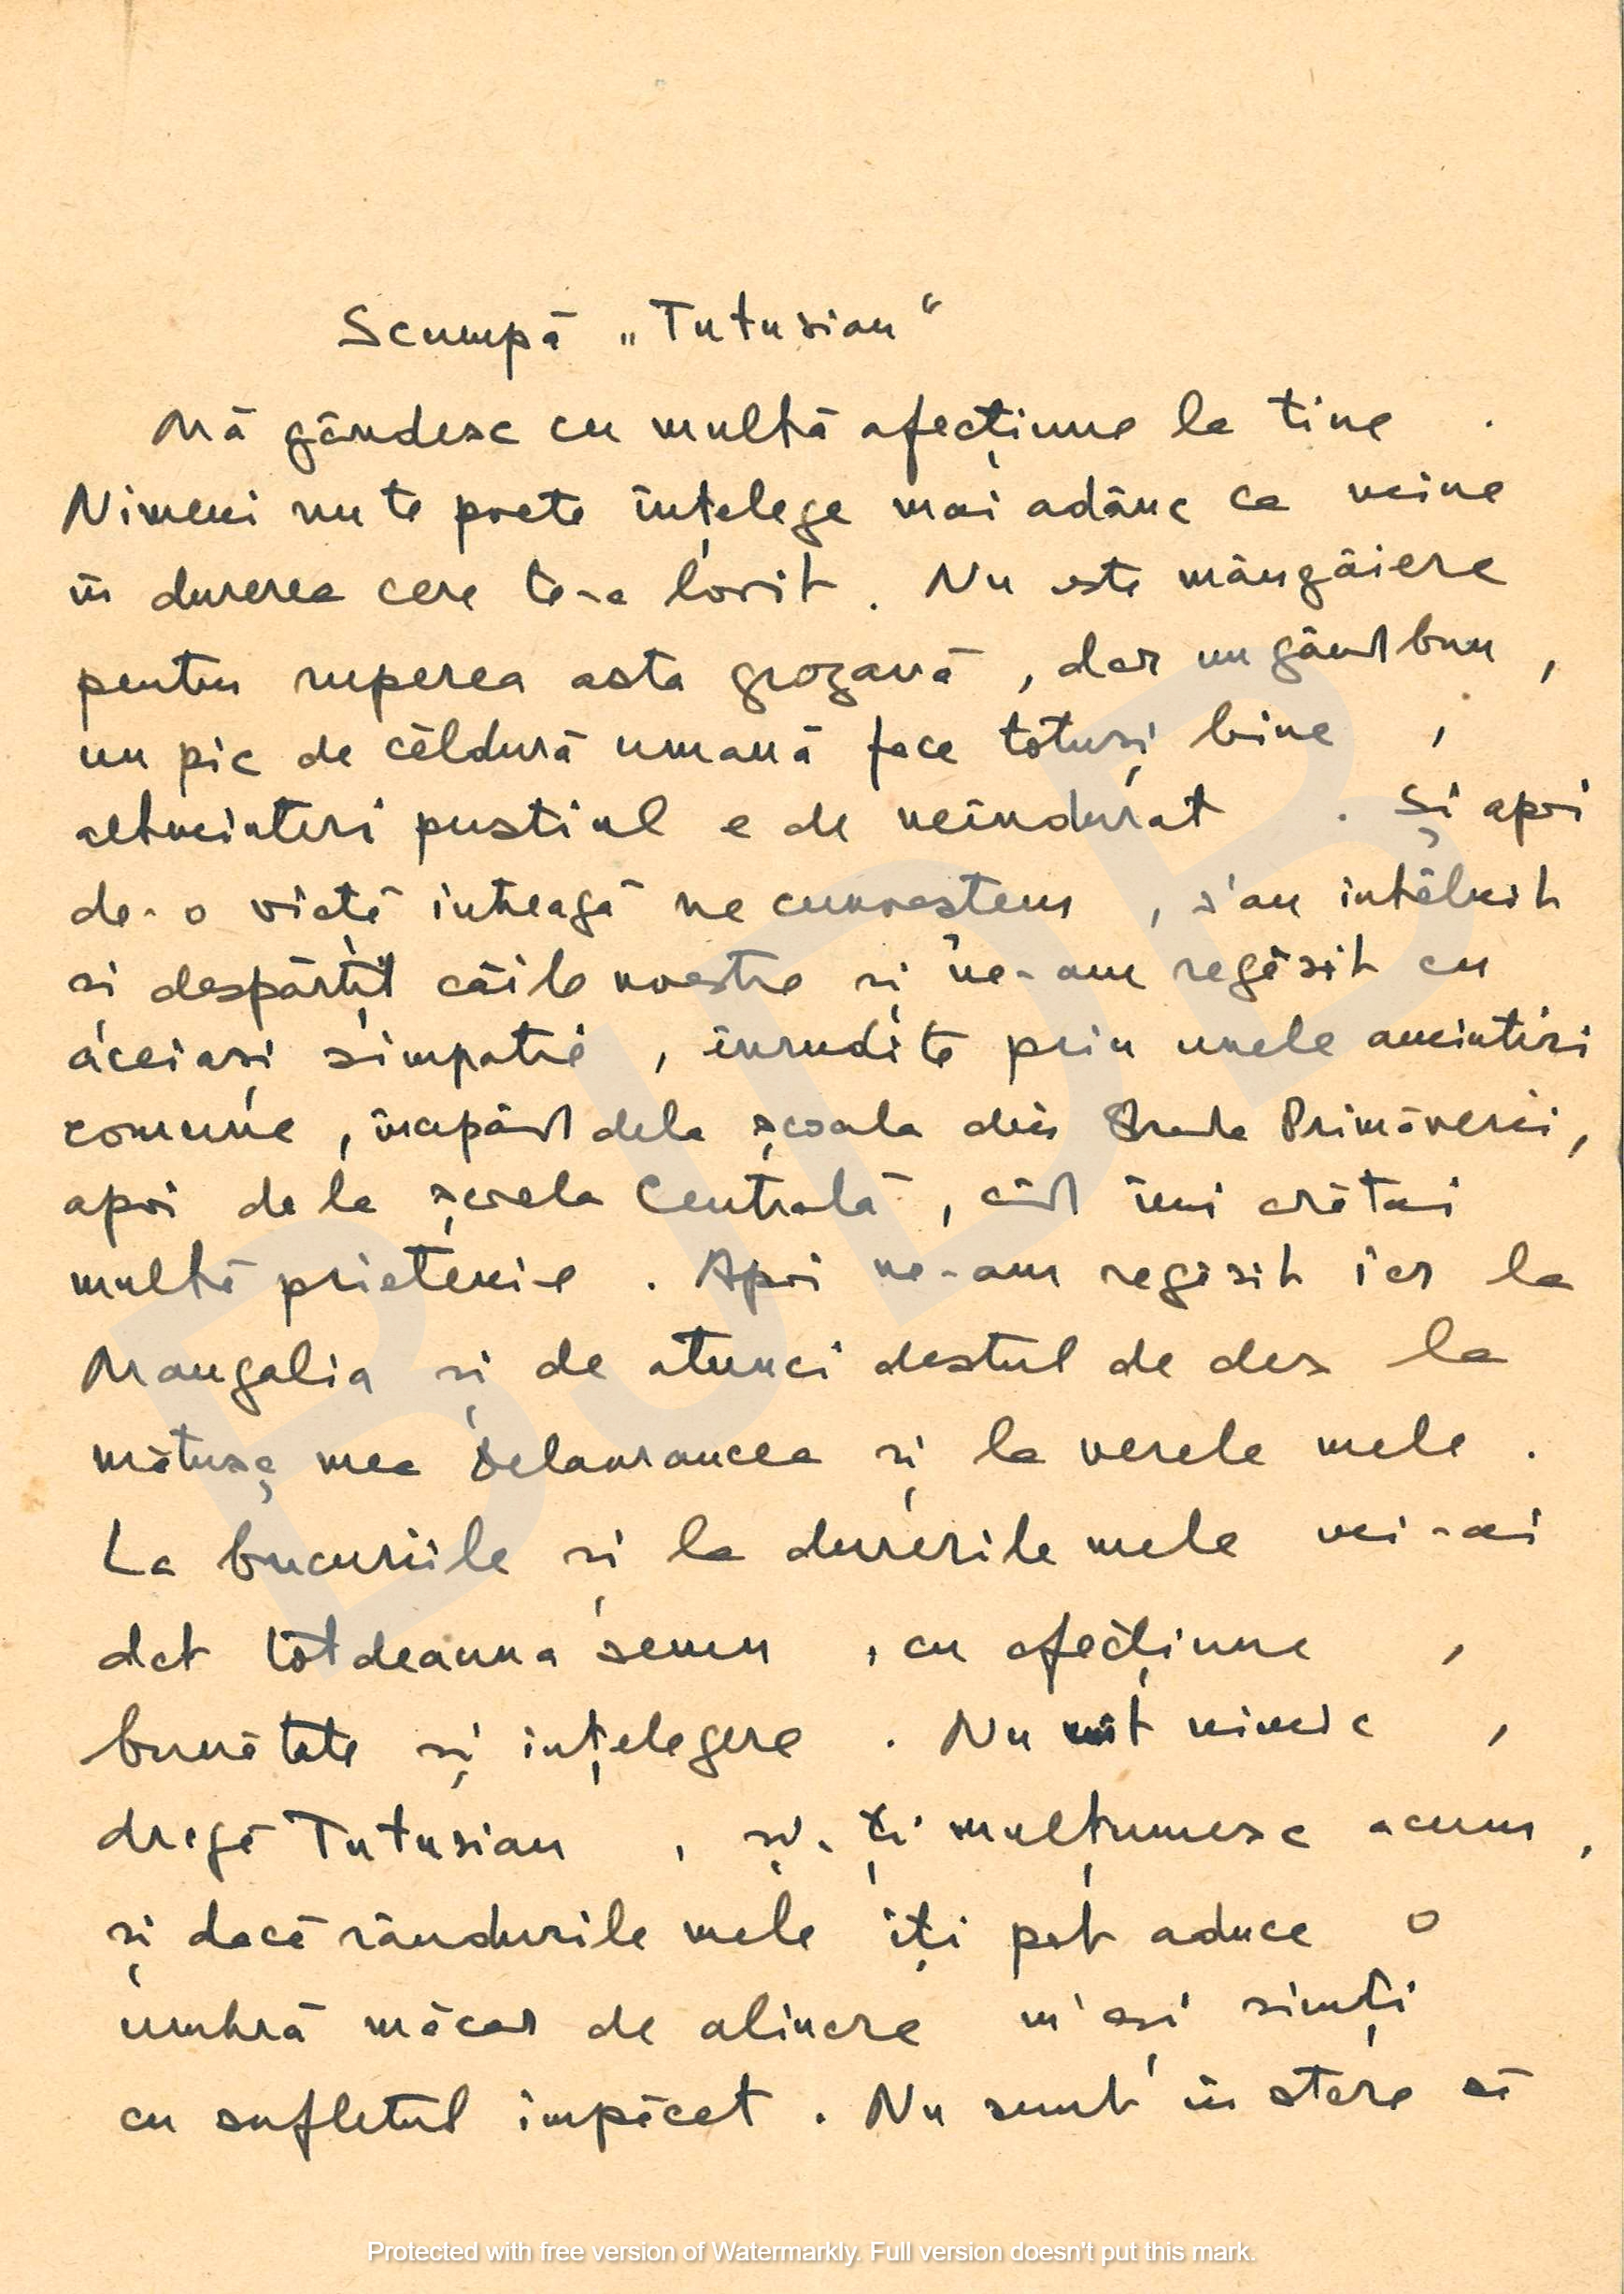 Scumpă „Tutusian“
Mă gândesc cu multă afecțiune la tine .
Nimeni nu te poate înțelege mai adânc ca mine
în durerea care te-a lovit . Nu este mângâiere
pentru ruperea asta grozavă , dar un gând bun ,
un pic de căldură umană face totuși bine ,
altminteri pustiul e de neîndurat . Și apoi
de-o viață întreagă ne cunoaștem , s'au întâlnit
și despărțit căile noastre și ne-am regăsit cu
aceiași simpatie , înrudite prin unele amintiri
comune , începând dela școala din Strada Primăverii ,
apoi de la școala Centrală , când îmi arătai
multă prietenie . Apoi ne-am regăsit iar la
Mangalia și de atunci destul de des la
mătușa mea Delavrancea și la verele mele .
La bucuriile și la durerile mele mi-ai
dat totdeauna semn , cu afecțiune ,
bunătate și înțelegere . Nu uit nimic ,
dragă Tutusian , și-ți mulțumesc acum ,
și dacă rândurile mele îți pot aduce o
umbră măcar de alinare m'ași simți
cu sufletul împăcat . Nu sunt în stare să
BUDB
Protected with free version of Watermarkly. Full version doesn't put this mark.